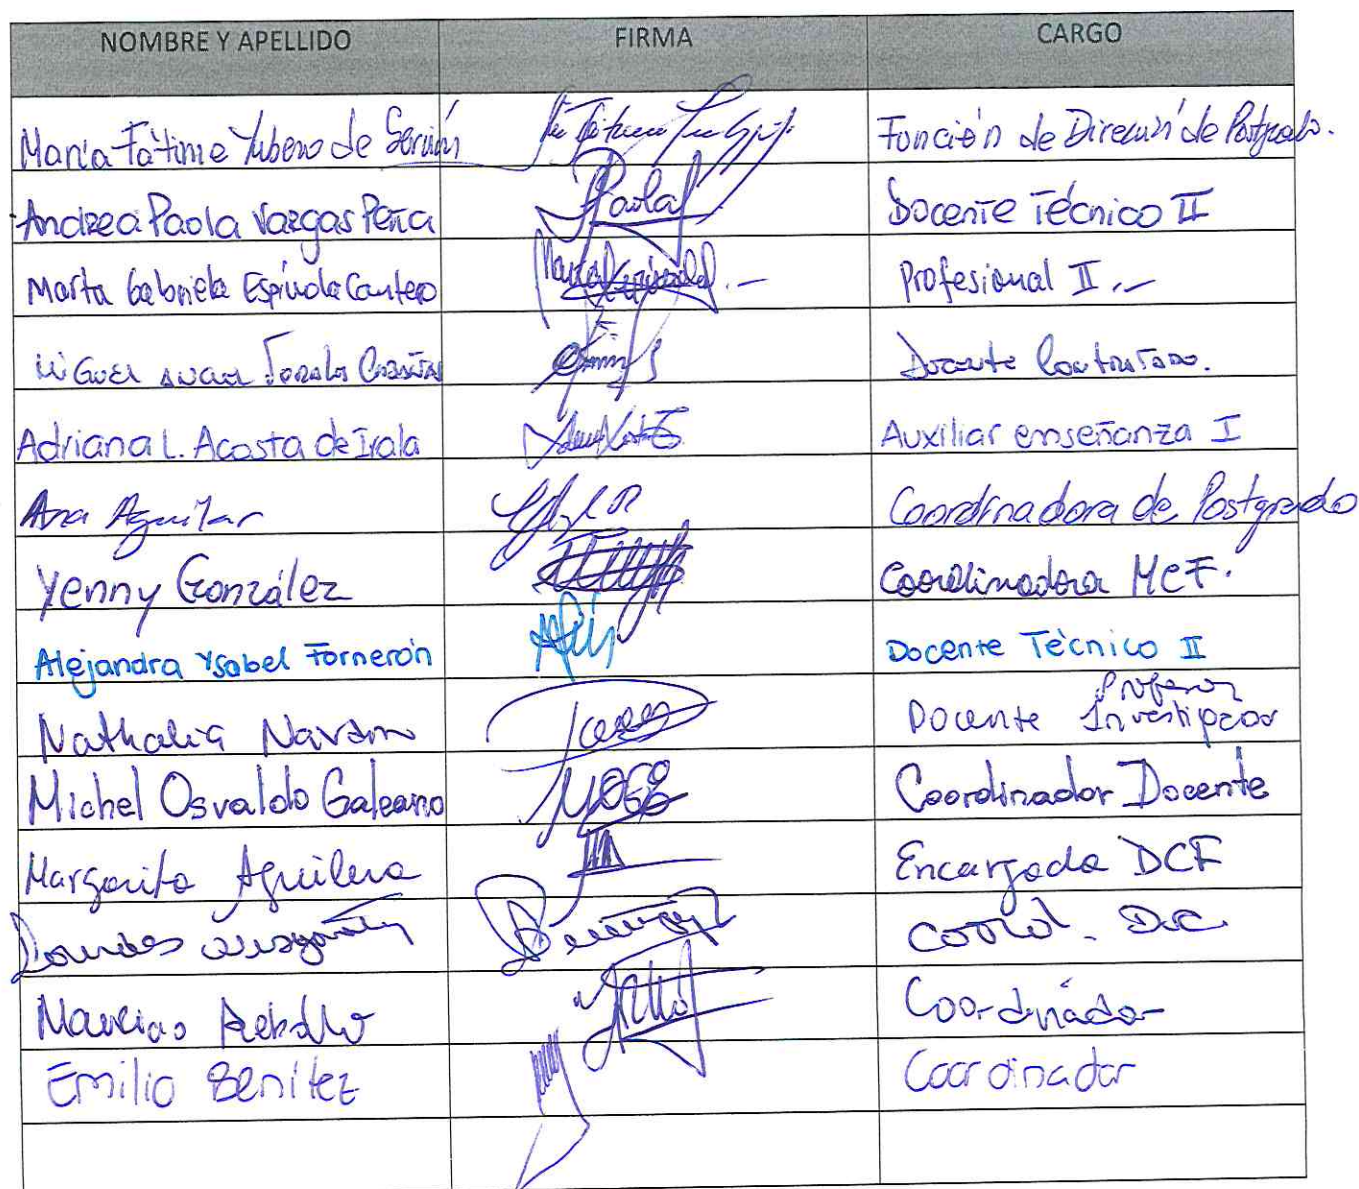 NOMBRE Y APELLIDO FIRMA CARGO
María Fátima Yubero de Servián Función de Dirección de Postgrado.
Andrea Paola Vargas Peña Paola Docente Técnico II
Marta Gabriela Espínola Cantero Profesional II .-
Miguel Docente Contratado.
Adriana L. Acosta de Irala Auxiliar enseñanza I
Ana Aguilar Coordinadora de Postgrado
Yenny González Coordinadora MCF.
Alejandra Ysabel Fornerón Docente Técnico II
Nathalia Navarro Docente Profesor Investigador
Michel Osvaldo Galeano MOGG Coordinador Docente
Margarita Aguilera Encargada DCF
Lourdes Coord. DC
Marcias Rebollo Coordinador
Emilio Benítez Coordinador